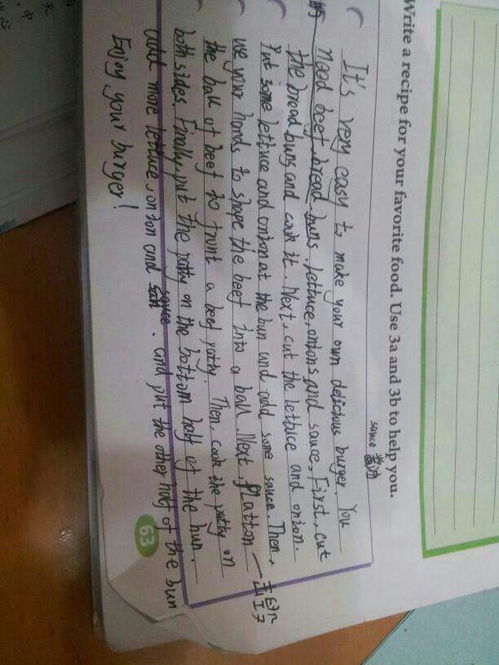 Write a recipe for your favorite food. Use 3a and 3b to help you.
sauce 酱汁
It's very easy to make your own delicious burger. You
need beef, bread buns, lettuce, onions, and sauce. First, cut
the bread buns and cook it. Next, cut the lettuce and onion.
Put some lettuce and onion at the bun and add some sauce. Then,
use your hands to shape the beef into a ball. Next, flatten
the ball of beef to a beef patty. Then, cook the patty on
both sides. Finally, put the patty on the bottom half of the bun.
add more lettuce, onion and sauce. and put the other half of the bun
Enjoy your burger!
63